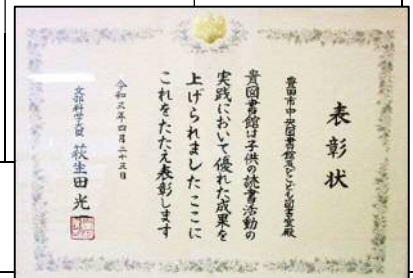 表彰状
豊田市中央図書館及びこども図書室殿
貴図書館は子供の読書活動の
実践において優れた成果を
上げられましたここに
これをたたえ表彰します
令和三年四月二十三日
文部科学大臣 萩生田光一